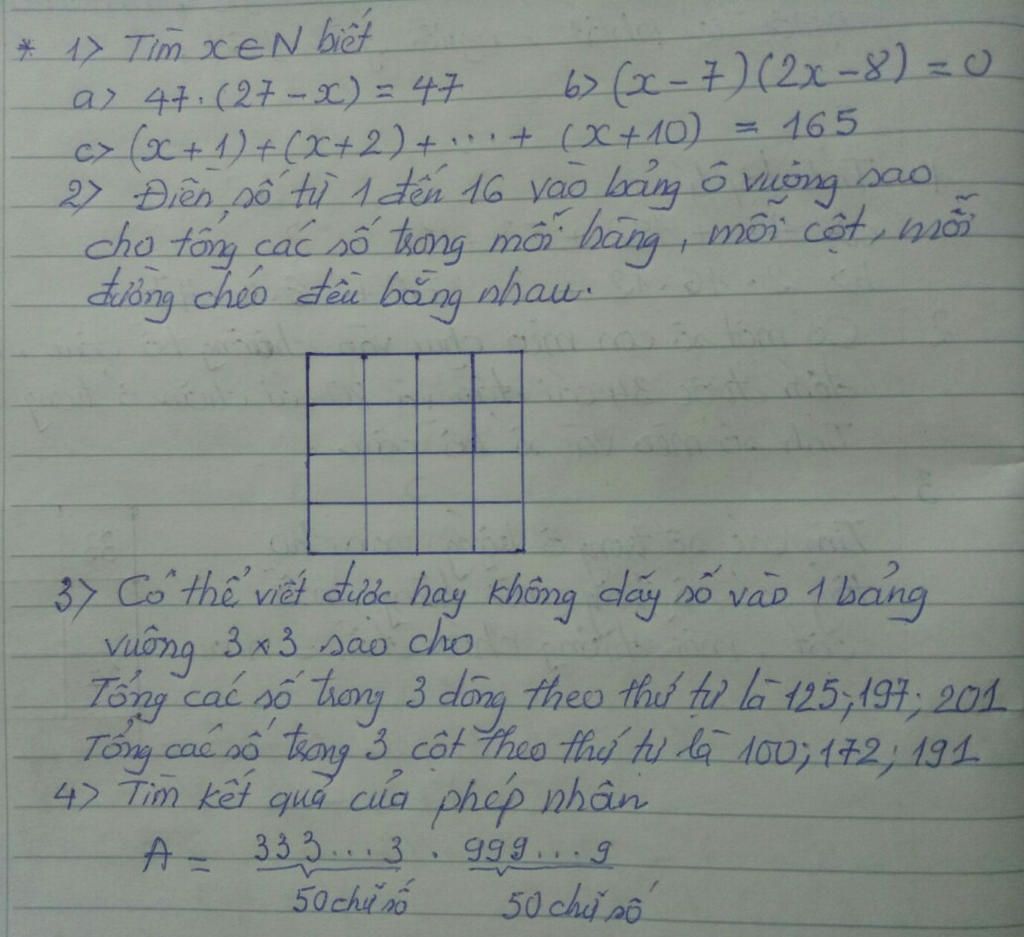 * 1> Tìm x ∈ N biết
a> 47.(27 - x) = 47 b> (x - 7)(2x - 8) = 0
c> (x + 1) + (x + 2) + ... + (x + 10) = 165
2> Điền số từ 1 đến 16 vào bảng ô vuông sao
cho tổng các số trong mỗi hàng, mỗi cột, mỗi
đường chéo đều bằng nhau.
3> Có thể viết được hay không dãy số vào 1 bảng
vuông 3 x 3 sao cho
Tổng các số trong 3 dòng theo thứ tự là 125; 197; 201
Tổng các số trong 3 cột theo thứ tự là 100; 172; 191
4> Tìm kết quả của phép nhân
A = 333...3 . 999...9
50 chữ số 50 chữ số